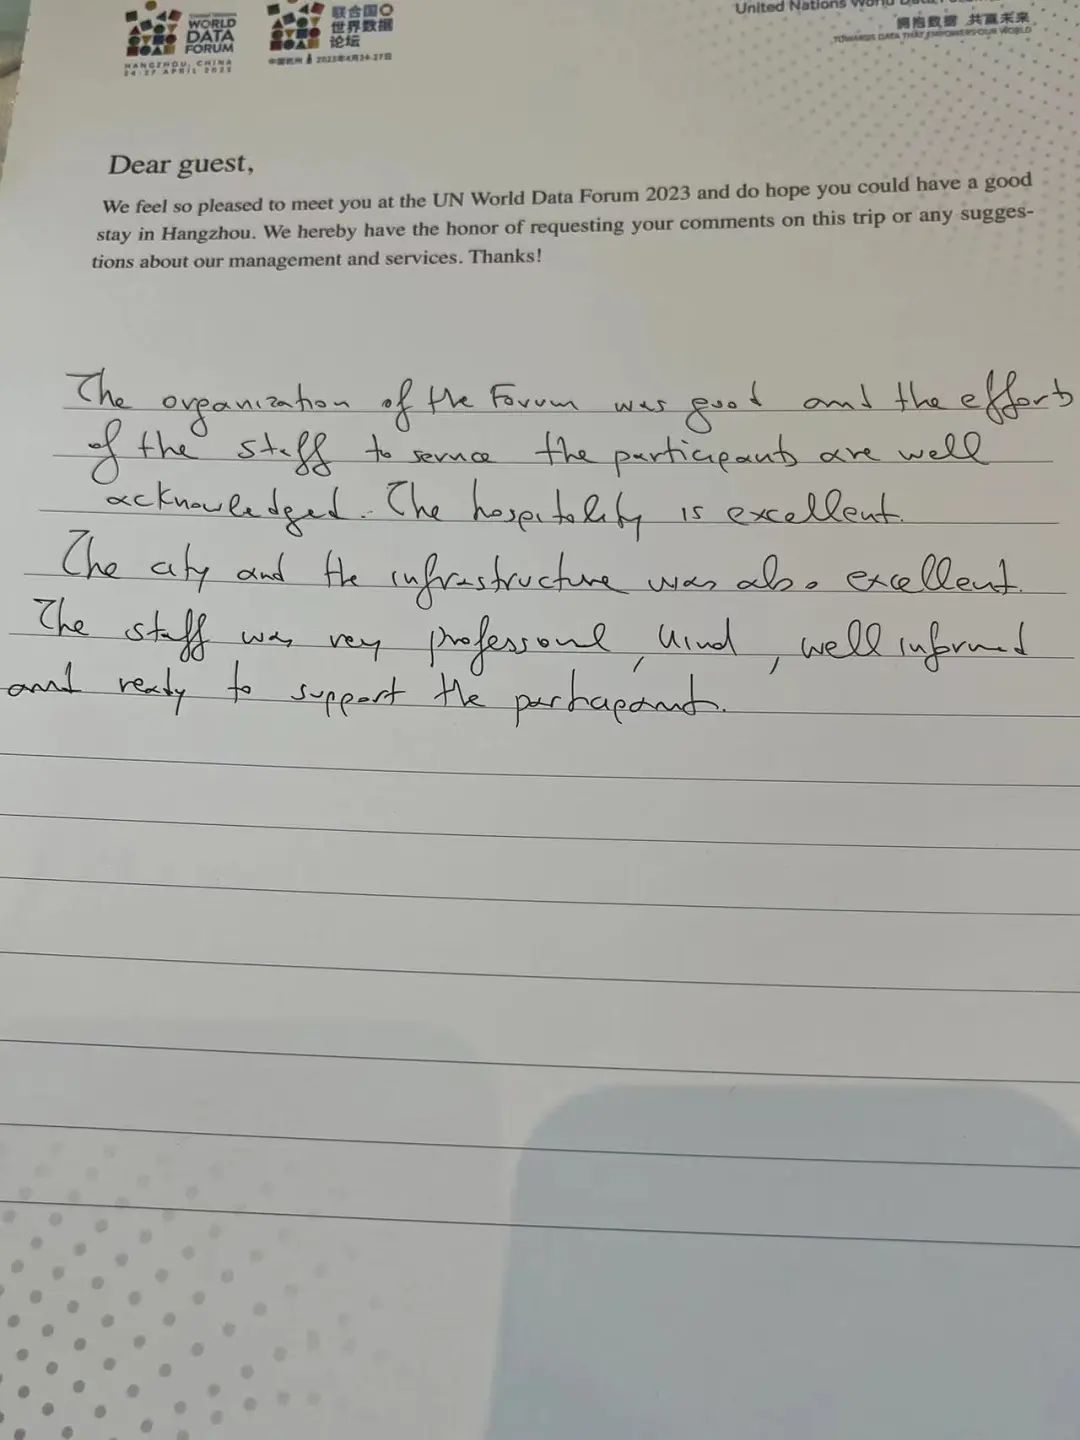 WORLD
DATA
FORUM
HANGZHOU, CHINA
24-27 APRIL 2023
联合国
世界数据
论坛
中国杭州 2023年4月24-27日
United Nations World Data
拥抱数据 共赢未来
TOWARDS DATA THAT EMPOWERS OUR WORLD
Dear guest,
We feel so pleased to meet you at the UN World Data Forum 2023 and do hope you could have a good
stay in Hangzhou. We hereby have the honor of requesting your comments on this trip or any sugges-
tions about our management and services. Thanks!
The organization of the Forum was good and the efforts
of the staff to service the participants are well
acknowledged. The hospitality is excellent.
The city and the infrastructure was also excellent.
The staff was very professional, kind, well informed
and ready to support the participants.